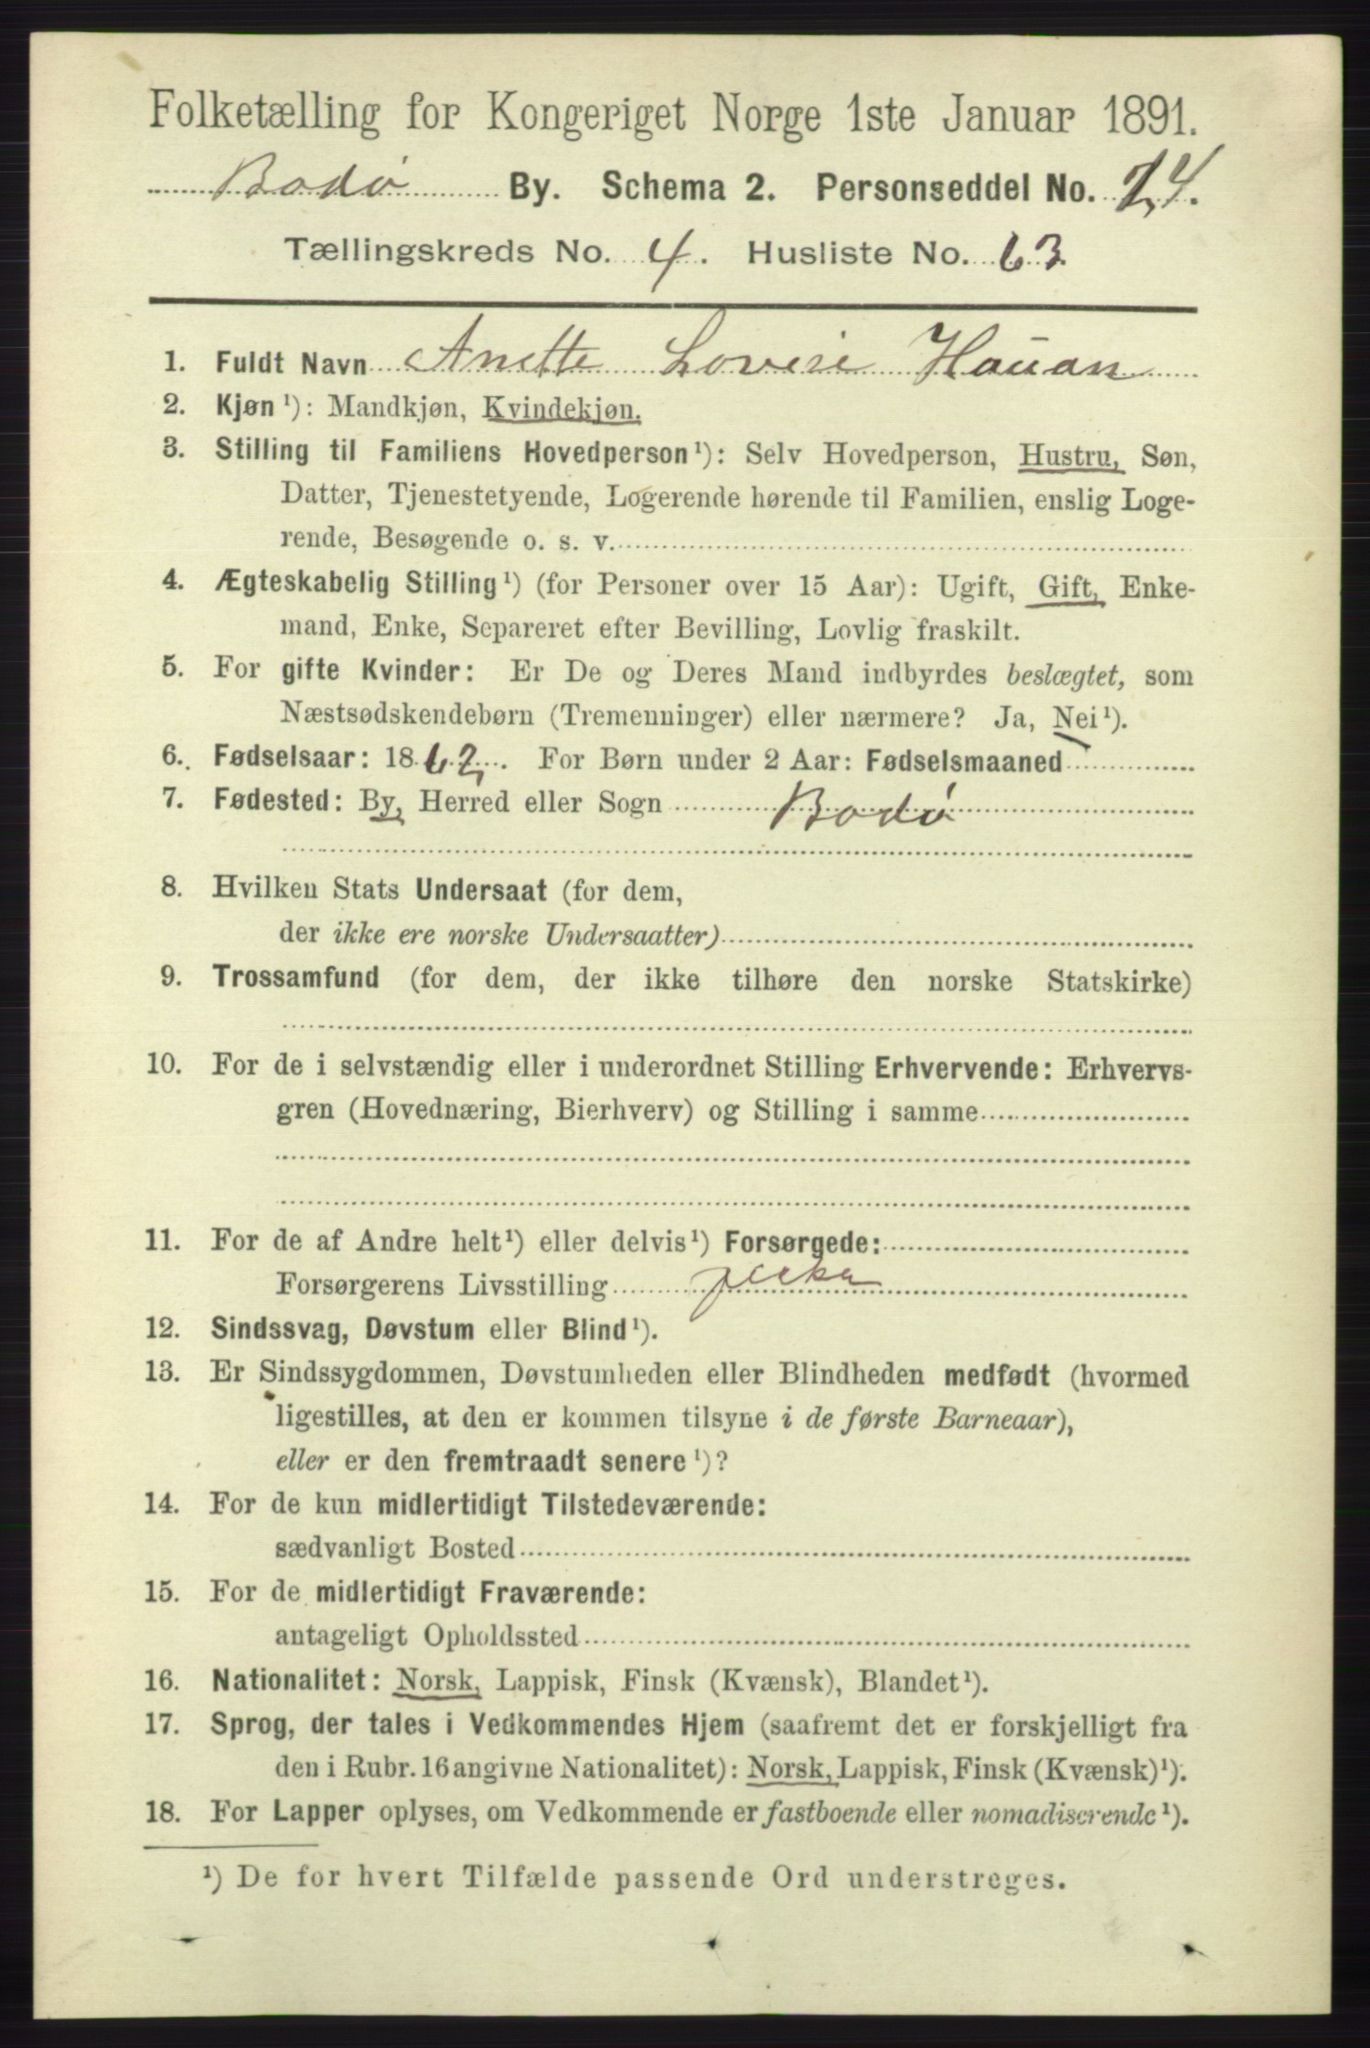 Folketælling for Kongeriget Norge 1ste Januar 1891.
Bodø By. Schema 2. Personseddel No. 24.
Tællingskreds No. 4. Husliste No. 63.
1. Fuldt Navn Anette Lovise Hauan
2. Kjøn ¹): Mandkjøn, Kvindekjøn.
3. Stilling til Familiens Hovedperson¹): Selv Hovedperson, Hustru, Søn,
Datter, Tjenestetyende, Logerende hørende til Familien, enslig Loge-
rende, Besøgende o. s. v.
4. Ægteskabelig Stilling¹) (for Personer over 15 Aar): Ugift, Gift, Enke-
mand, Enke, Separeret efter Bevilling, Lovlig fraskilt.
5. For gifte Kvinder: Er De og Deres Mand indbyrdes beslægtet, som
Næstsødskendebørn (Tremenninger) eller nærmere? Ja, Nei¹).
6. Fødselsaar: 1862. For Børn under 2 Aar: Fødselsmaaned
7. Fødested: By, Herred eller Sogn Bodø
8. Hvilken Stats Undersaat (for dem,
der ikke ere norske Undersaatter)
9. Trossamfund (for dem, der ikke tilhøre den norske Statskirke)
10. For de i selvstændig eller i underordnet Stilling Erhvervende: Erhvervs-
gren (Hovednæring, Bierhverv) og Stilling i samme
11. For de af Andre helt¹) eller delvis¹) Forsørgede:
Forsørgerens Livsstilling
12. Sindssvag, Døvstum eller Blind¹).
13. Er Sindssygdommen, Døvstumheden eller Blindheden medfødt (hvormed
ligestilles, at den er kommen tilsyne i de første Barneaar),
eller er den fremtraadt senere¹)?
14. For de kun midlertidigt Tilstedeværende:
sædvanligt Bosted
15. For de midlertidigt Fraværende:
antageligt Opholdssted
16. Nationalitet: Norsk, Lappisk, Finsk (Kvænsk), Blandet¹).
17. Sprog, der tales i Vedkommendes Hjem (saafremt det er forskjelligt fra
den i Rubr. 16 angivne Nationalitet): Norsk, Lappisk, Finsk (Kvænsk)¹).
18. For Lapper oplyses, om Vedkommende er fastboende eller nomadiserende¹).
¹) De for hvert Tilfælde passende Ord understreges.